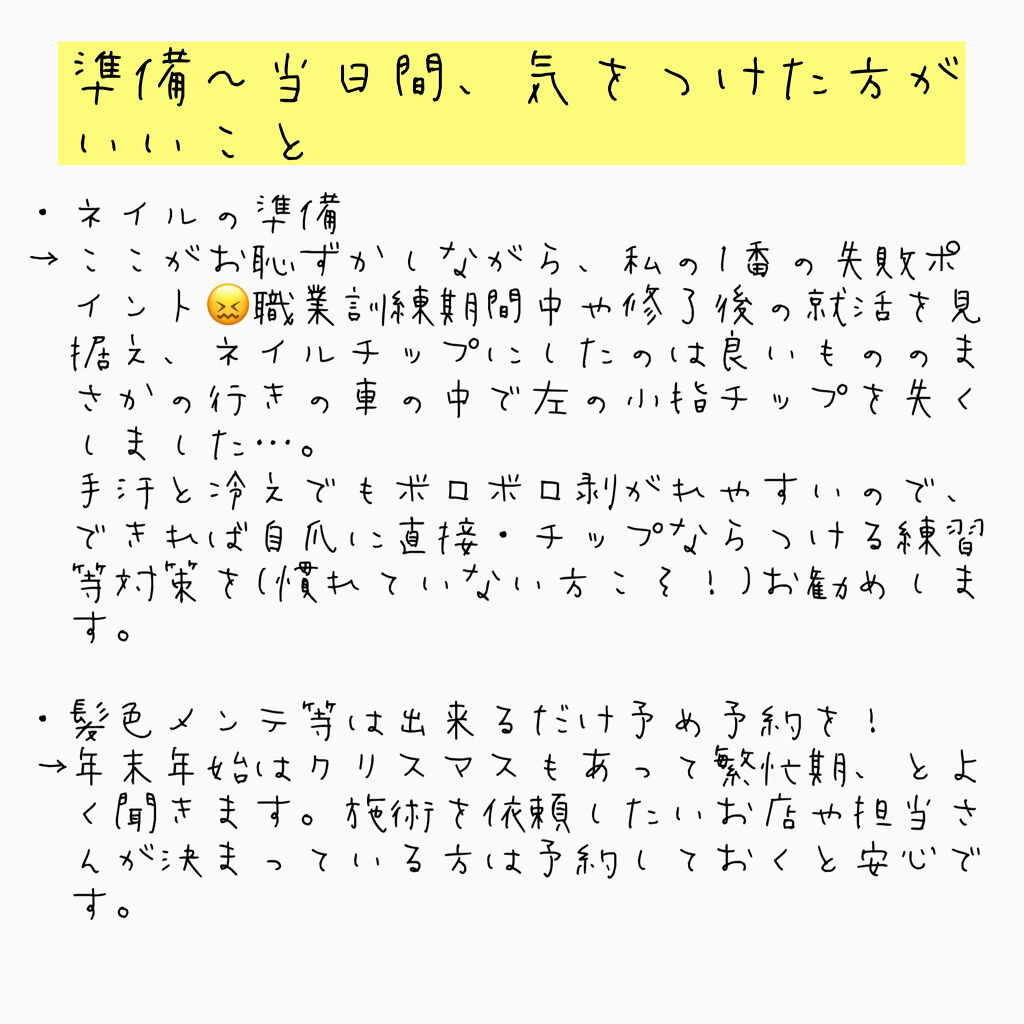 準備〜当日間、気をつけた方が
いいこと
・ネイルの準備
→ここがお恥ずかしながら、私の1番の失敗ポ
イント😖職業訓練期間中や修了後の就活を見
据え、ネイルチップにしたのは良いもののま
さかの行きの車の中で左の小指チップを失く
しました…。
手汗と冷えでもボロボロ剥がれやすいので、
できれば自爪に直接・チップならつける練習
等対策を(慣れていない方こそ!)お勧めしま
す。
・髪色メンテ等は出来るだけ予め予約を!
→年末年始はクリスマスもあって繁忙期、とよ
く聞きます。施術を依頼したいお店や担当さ
んが決まっている方は予約しておくと安心で
す。